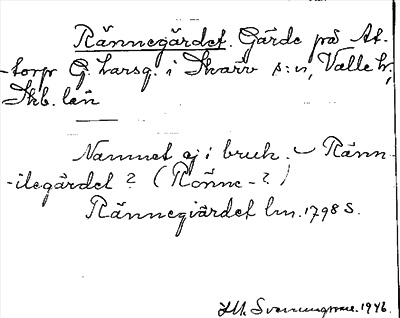 Rännegärdet. Gärde på At-
-torp G. Larsg. i Skärv s:n, Valle hr,
Skb. län
Namnet ej i bruk. – Ränn-
-ilegärdet? (Rönne-?)
Rännegiärdet lm. 1798 S.
1946.